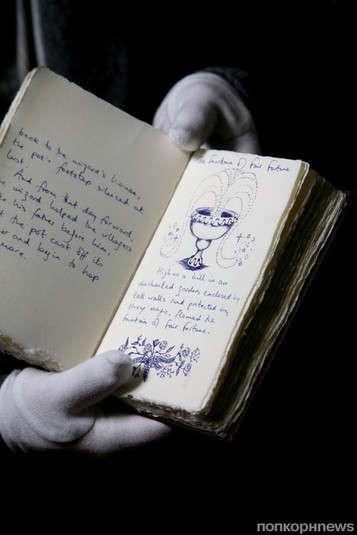 back to the wizard's house
the pot's footstep silenced at
last.
And from that day forward,
wizard helped the villagers
his father before him,
the pot cast off its
and begin to hop
more.
The Fountain of Fair Fortune
High on a hill in an
enchanted garden, enclosed by
tall walls and protected by
strong magic, flowed the
Fountain of Fair Fortune.
попкорнnews